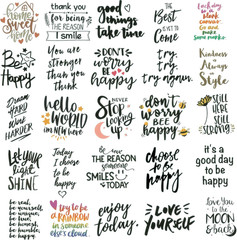 Home
Sweet
Home
thank you
for being
THE REASON
I smile
good
things
take time
The
Best
is yet
to come
Be
Happy
You are
stronger
than you
think
DON'T
WORRY
BE
happy
try,
try,
try again.
Kindness
is Always
in
Style
DREAM
HARD
Work
HARDER
hello
WORLD
I'M NEW HERE
NEVER
Stop
Looking
up
don't
worry
be
happy
STILL
HERE
STILL
STRONG
LET YOUR
light
SHINE
Today
I choose
to be
happy
BE
THE REASON
SOMEONE
SMILES
TODAY
choose
to be
happy
it's a
good day
to be
happy
try to be
A RAINBOW
in someone
else's cloud.
enjoy
today.
LOVE
YOURSELF
love you
to the
MOON
& back